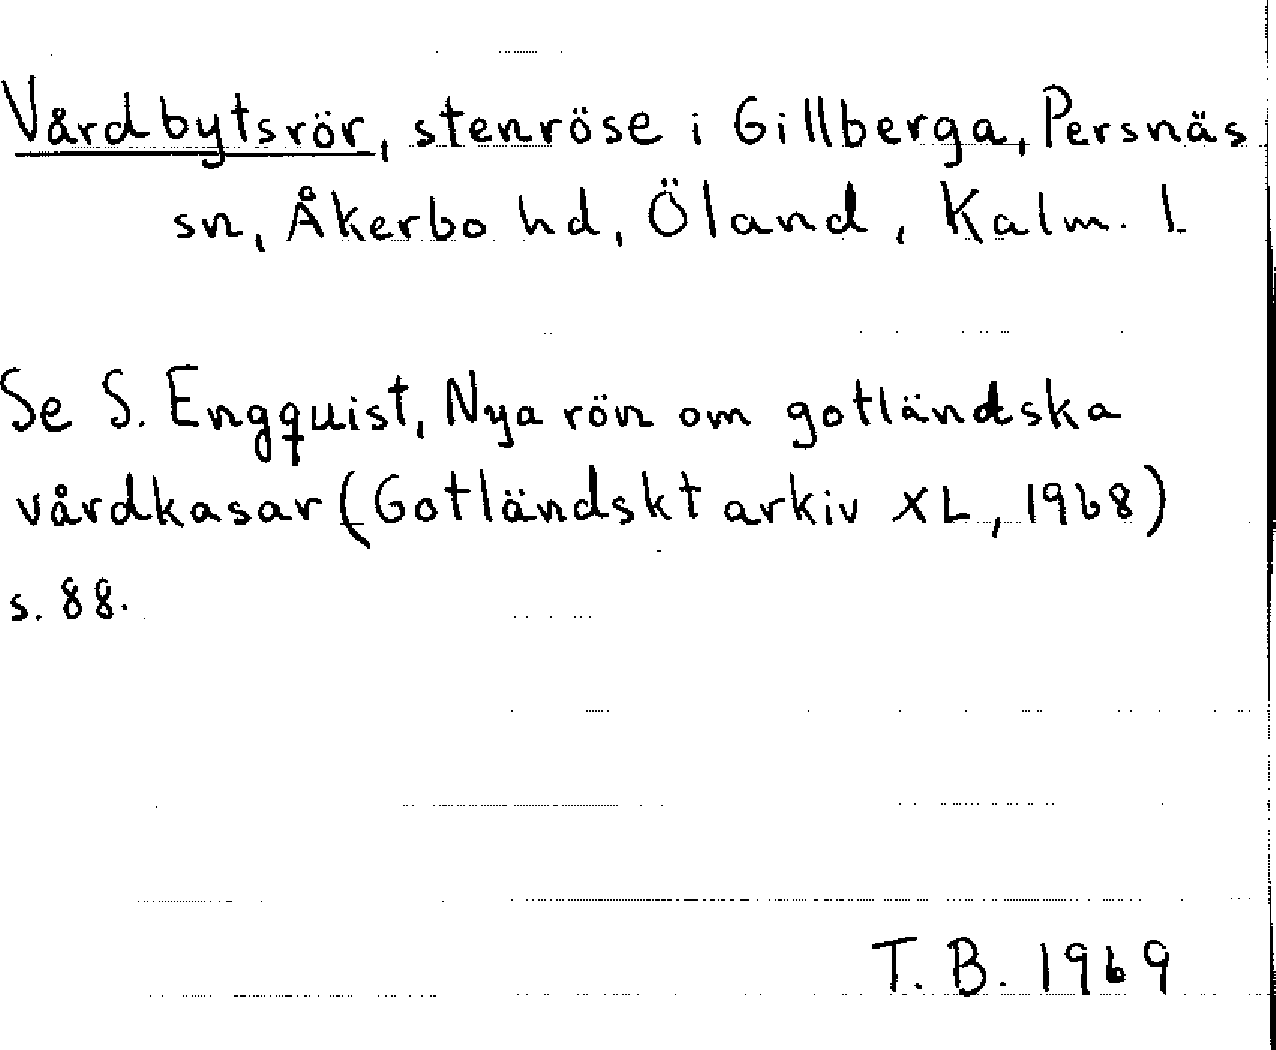 Vårdbytsrör, stenröse i Gillberga, Persnäs
sn, Åkerbo hd, Öland, Kalm. l.
Se S. Engquist, Nya rön om gotländska
vårdkasar (Gotländskt arkiv XL, 1968)
s. 88.
T. B. 1969